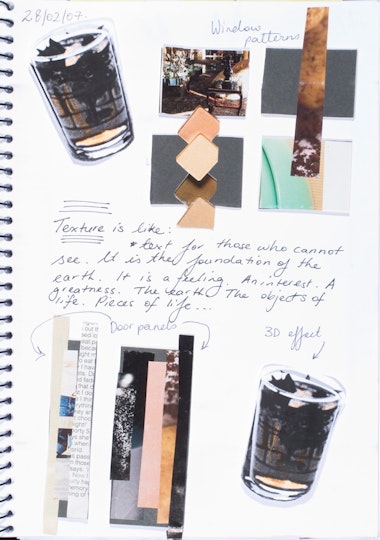 28/02/07.
Window
patterns
Texture is like:
* text for those who cannot
see. It is the foundation of the
earth. It is a feeling. An interest. A
greatness. The earth. The objects of
life. Pieces of life...
Door panels
3D effect